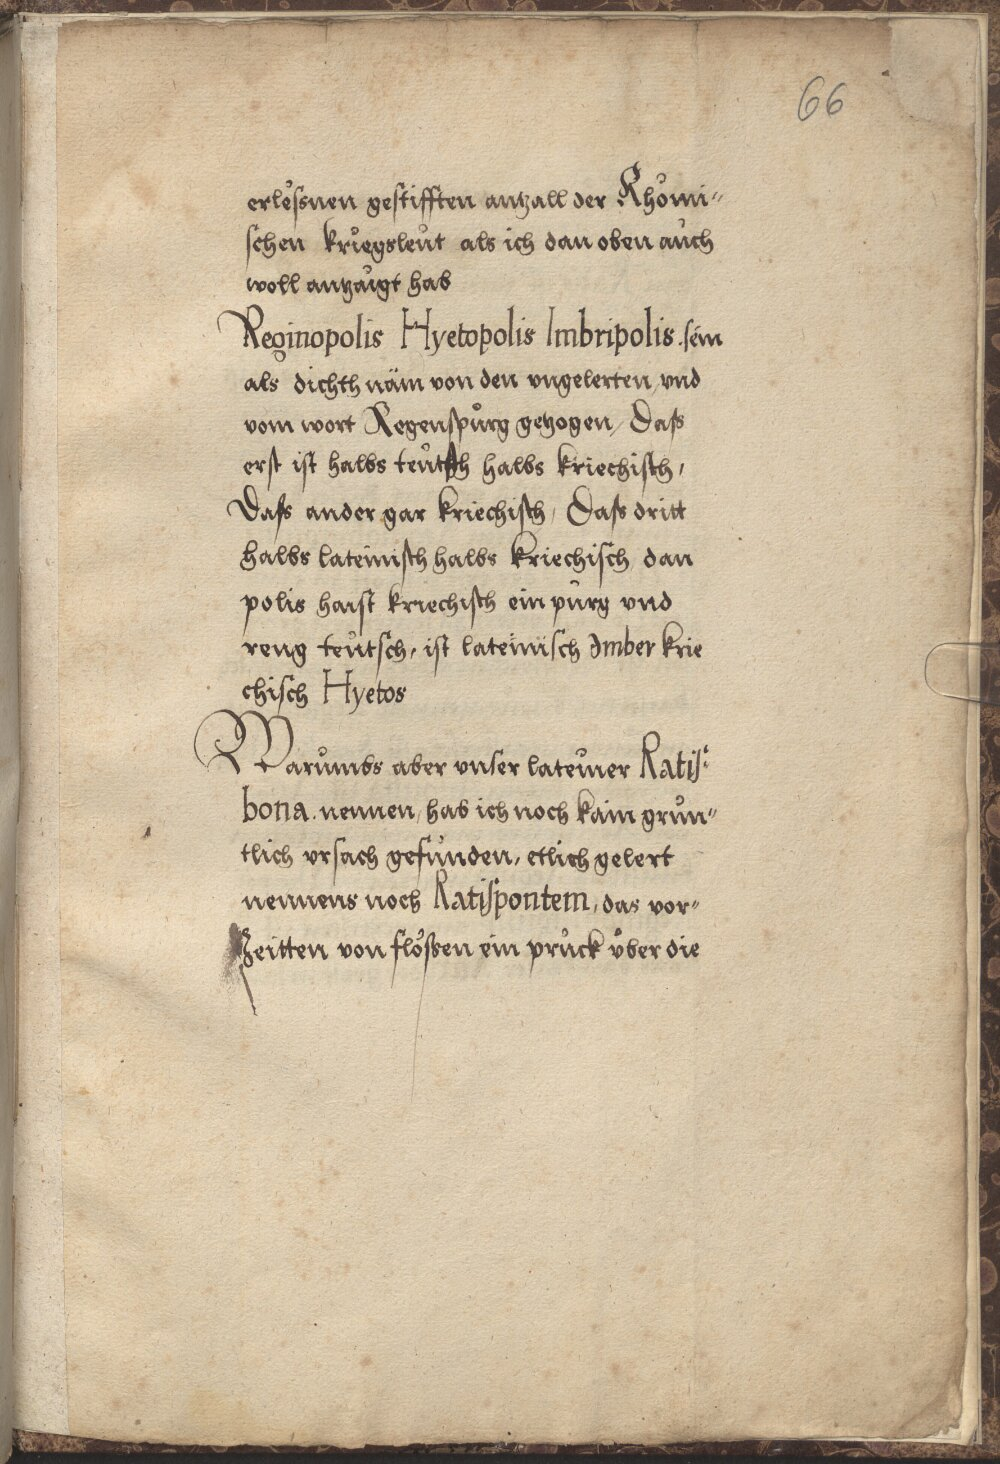 66
erlößnen gestifften antzall der Rhömi=
schen kriegsleut als ich dan oben auch
woll antzaigt hab
Reginopolis Hyetopolis Imbripolis. sein
als dichth näm von den vngelerten, vnd
vom wort Regenspurg getzogen, Dass
erst ist halbs teutsch halbs kriechisch,
Dass ander gar kriechisch, Dass dritt
halbs lateinisch halbs kriechisch dan
polis haist kriechisch ein purg vnd
reng teutsch, ist lateinisch Imber krie
chisch Hyetos
Warumbs aber vnser lateiner Ratis=
bona. nennen, hab ich noch kain grün=
tlich vrsach gefunden, etlich gelert
nennens noch Ratispontem, das vor=
zeitten von flößen ein prück über die